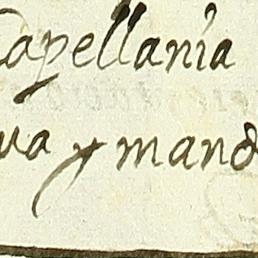 Capellania
va y mando